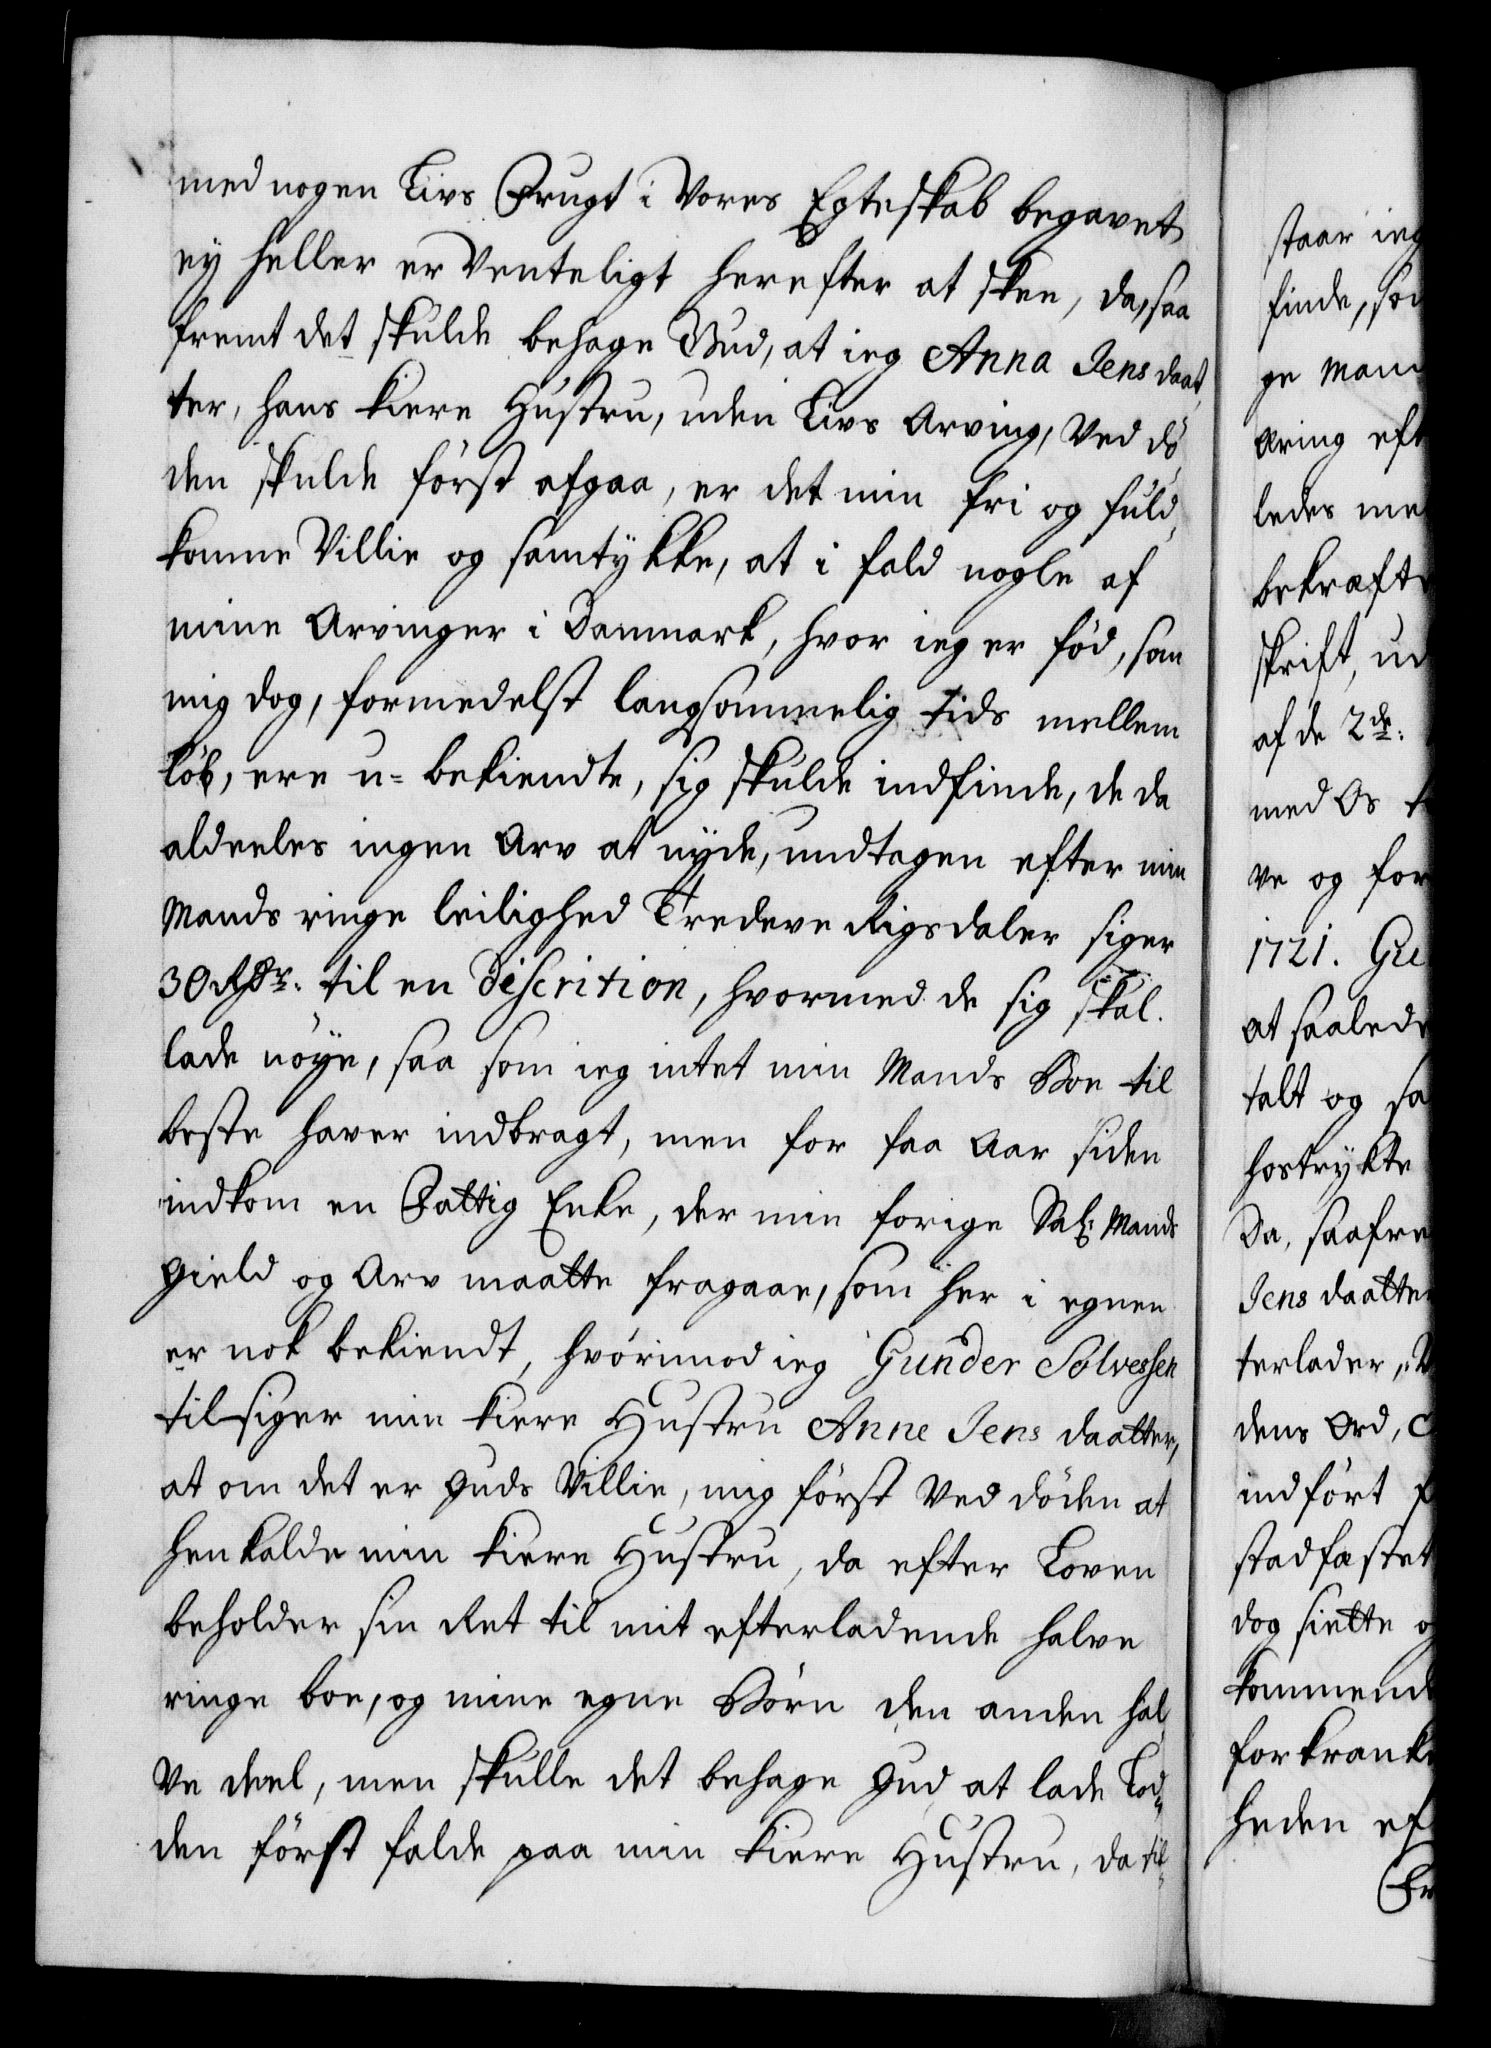 med nogen Livs Frugt i Vores Egteskab begavet
ey heller er Venteligt herefter at skee, da, saa
fremt det skulde behage Gud, at ieg Anna Jens daat,
ter, hans kiere Hustru, uden Livs Arving, Ved dö,
den skulde först afgaa, er det min fri og fuld,
komne Villie og samtykke, at i fald nogle af
mine Arvinger i Danmark, hvor ieg er fød, som
mig dog, formedelst langsommelig tids mellem
löb, ere u-bekiendte, sig skulde indfinde, de da
aldeeles ingen Arv at nyde, undtagen efter min
Mands ringe leilighed Tredeve Rigsdaler siger
30 Rdr. til en discrition, hvormed de sig skal
lade nöye, saa som ieg intet min Mands Boe til
beste haver indbragt, men for faa Aar siden
indkom en Fattig Enke, der min forige Sal: Mands
gield og Arv maatte fragaae, som her i egnen
er nok bekiendt, hvorimod ieg Gunder Solvessen
tilsiger min kiere Hustru Anne Jens daatter,
at om det er Guds Villie, mig först Ved döden at
henkalde min kiere Hustru, da efter Loven
beholder sin Ret til mit efterladende halve
ringe boe, og mine egne Börn den anden hal,
ve deel, men skulle det behage Gud at lade Lod-
den först falde paa min kiere Hustru, da til-
staar ieg
finde, so
ge Man
Aring eft
ledes me
bekrafte
skrift, ud
af de 2de:
med Os
ve og for
1721. Gu
at saalede
talt og sa
hostrykte
Da, saafre
Jens daatter
terlader,
dens Ord,
indfört
stadfæstet
dog siette o
kommend
for kranke
heden ef